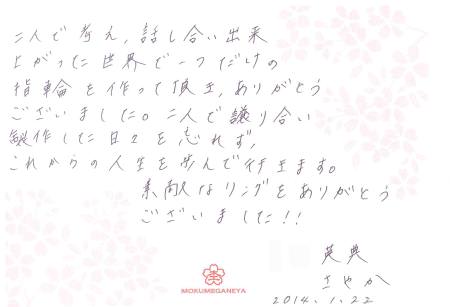 二人で考え、話し合い出来
上がった世界で一つだけの
指輪を作って頂き、ありがとう
ございました。二人で譲り合い
製作した日々を忘れず、
これからの人生を歩んで行きます。
素敵なリングをありがとう
ございました!!
英典
さやか
MOKUMEGANEYA
2014.1.22